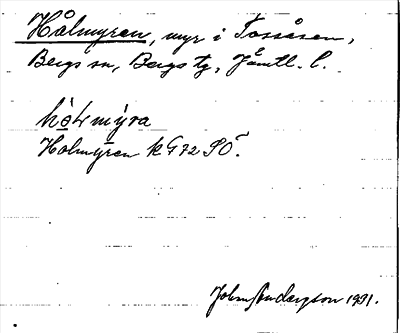 Hålmyren, myr i Tossåsen,
Bergs sn, Bergs tg, Jämtl. l.
myra
Holmyren k G 72 SO.
John Andersson 1931.